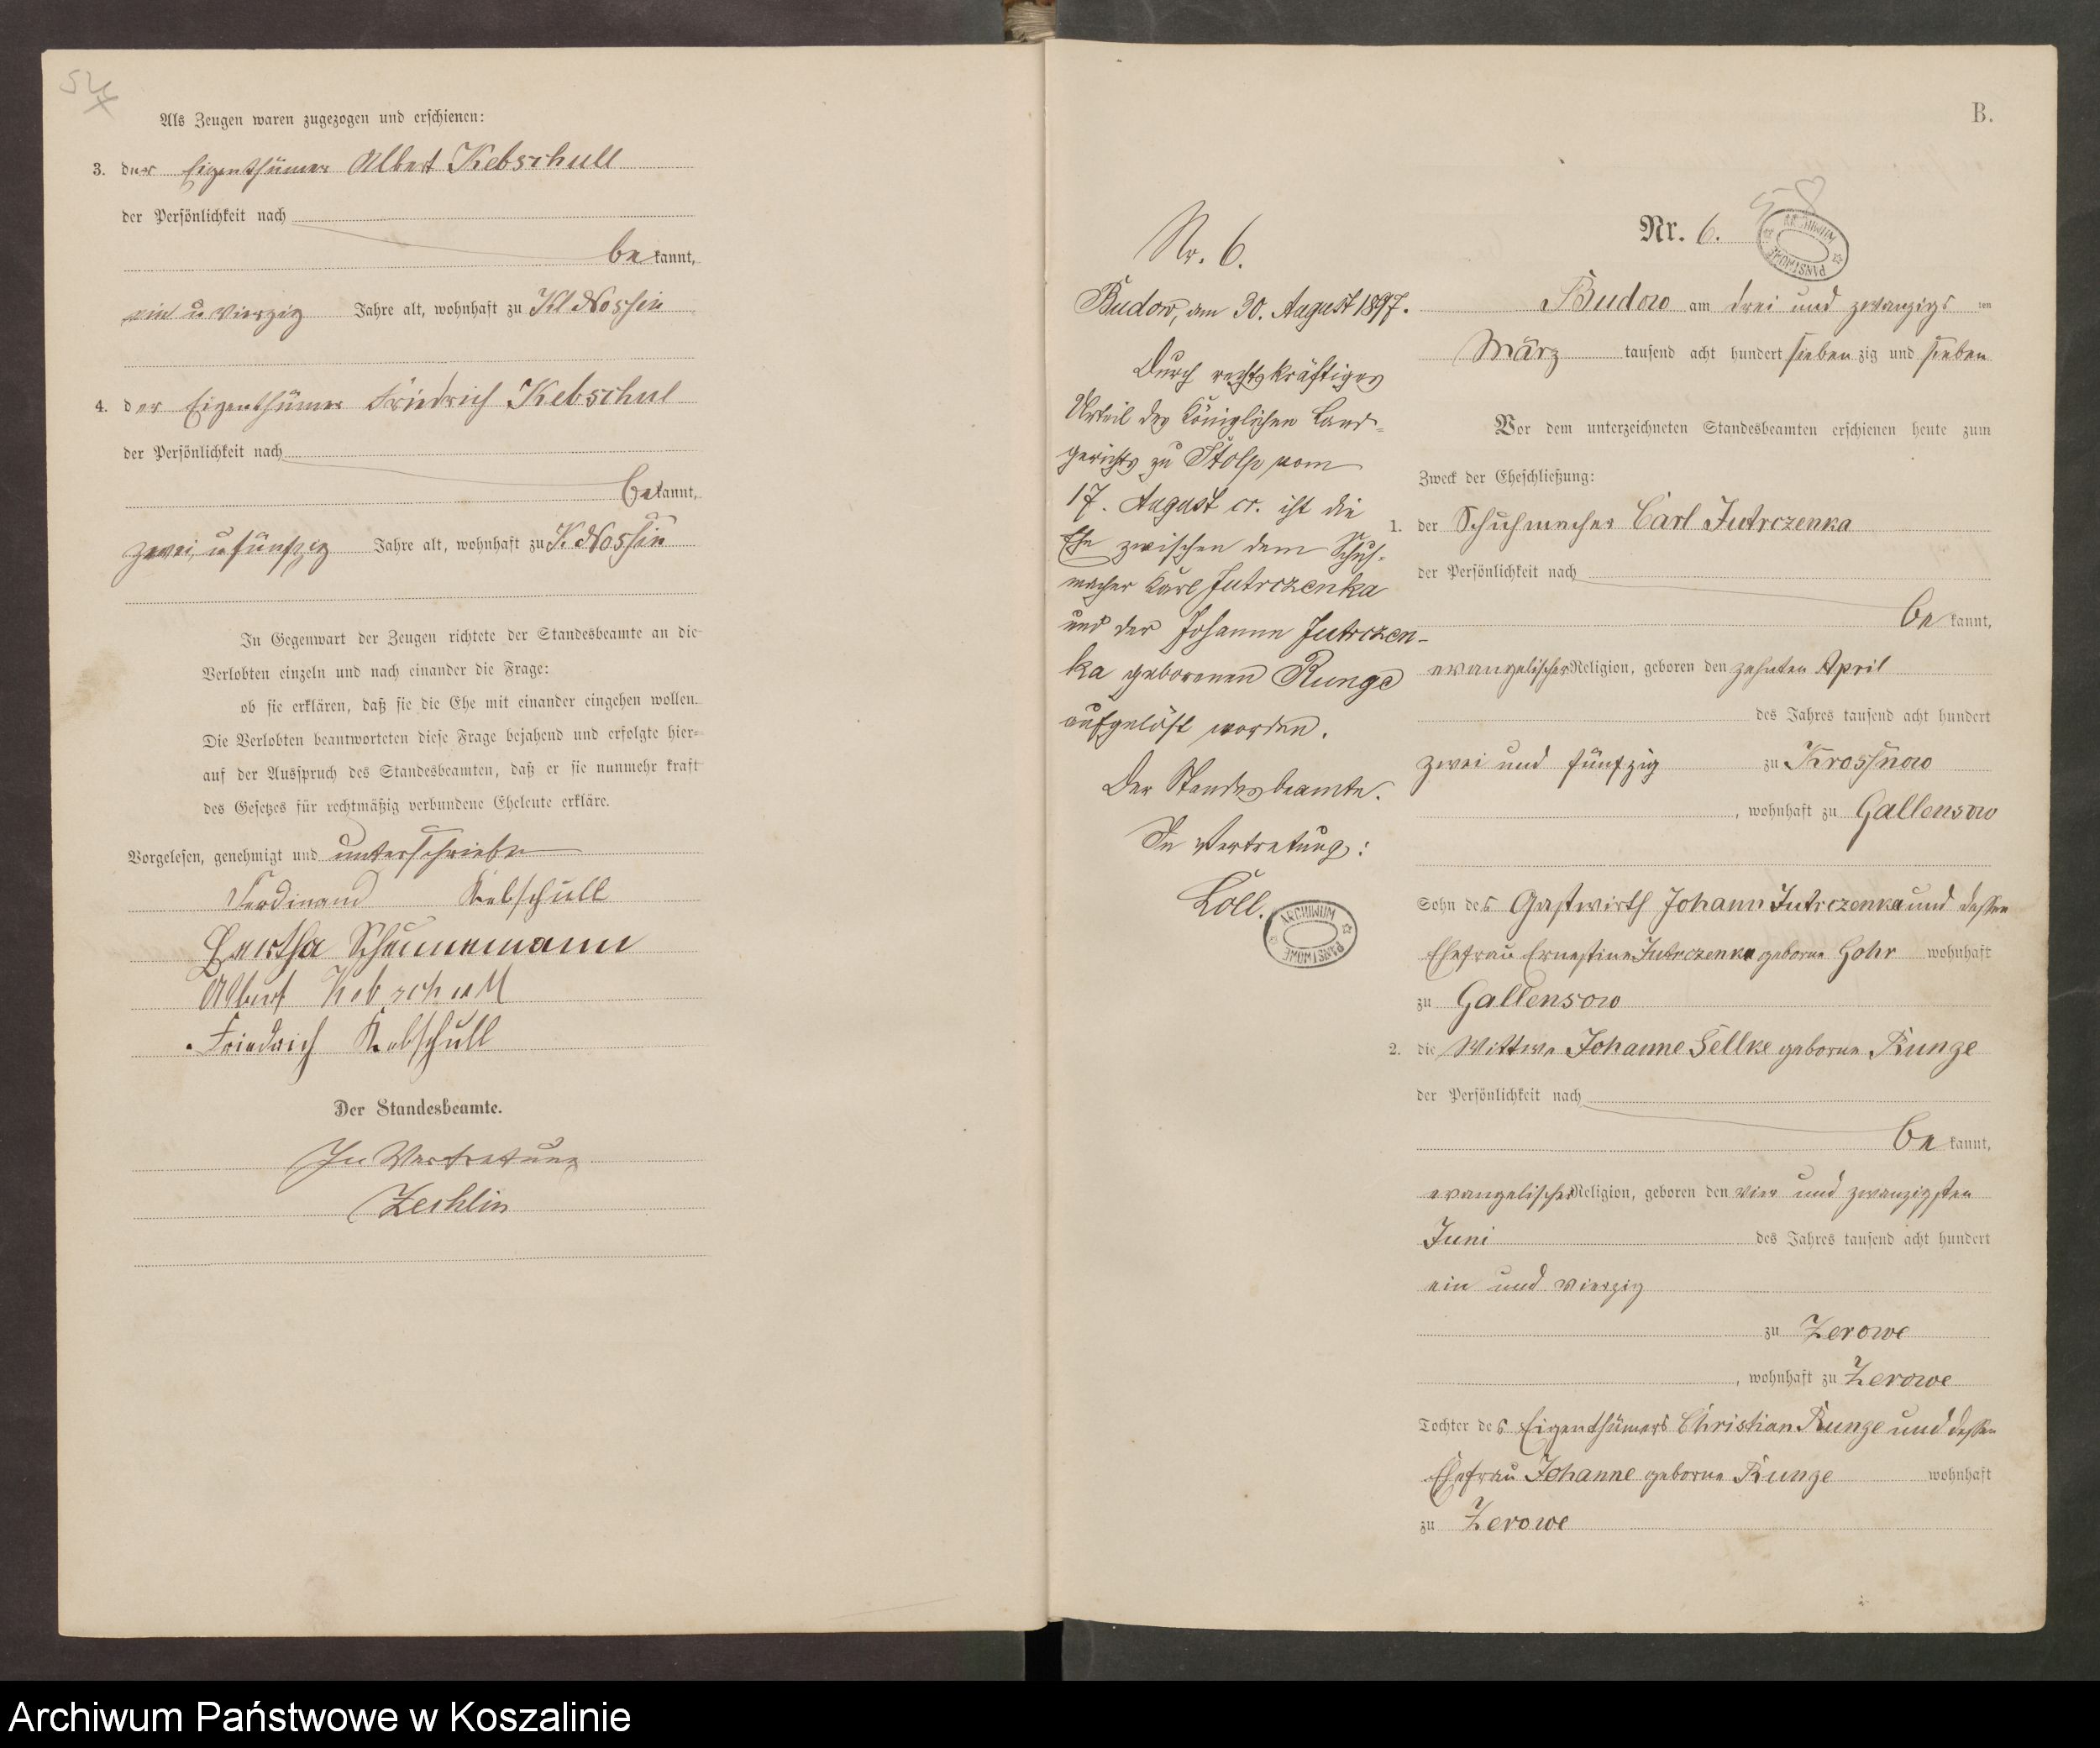 Als Zeugen waren zugezogen und erschienen:
3. der Eigenthümer Albert Kebschull
der Persönlichkeit nach
be kannt,
ein u vierzig Jahre alt, wohnhaft zu Kl Nossin
4. der Eigenthümer Friedrich Kebschul
der Persönlichkeit nach
be kannt,
zwei u fünfzig Jahre alt, wohnhaft zu K. Nossin
In Gegenwart der Zeugen richtete der Standesbeamte an die
Verlobten einzeln und nach einander die Frage:
ob sie erklären, daß sie die Ehe mit einander eingehen wollen.
Die Verlobten beantworteten diese Frage bejahend und erfolgte hier=
auf der Ausspruch des Standesbeamten, daß er sie nunmehr kraft
des Gesetzes für rechtmäßig verbundene Eheleute erkläre.
Vorgelesen, genehmigt und unterschrieben
Ferdinand Kebschull
Bertha Scheunemann
Albert Kebschull
Friedrich Kebschull
Der Standesbeamte.
In Vertretung
Zechlin
B.
Nr. 6.
Budow, am 30. August 1897.
Durch rechtskräftiges
Urteil des Königlichen Land=
gerichts zu Stolp vom
17. August cr. ist die
Ehe zwischen dem Schuh-
macher Karl Jutrczenka
und der Johanne Jutrczen-
ka geborenen Runge
aufgelöst worden.
Der Standesbeamte.
In Vertretung:
Köll.
ARCHIWUM PAŃSTWOWE
Nr. 6.
ARCHIWUM PAŃSTWOWE
Budow am drei und zwanzigs ten
März tausend acht hundert sieben zig und sieben
Vor dem unterzeichneten Standesbeamten erschienen heute zum
Zweck der Eheschließung:
1. der Schuhmacher Carl Jutrczenka
der Persönlichkeit nach
be kannt,
evangelischer Religion, geboren den zehnten April
des Jahres tausend acht hundert
zwei und fünfzig zu Krossnow
, wohnhaft zu Gallensow
Sohn des Gastwirth Johann Jutrczenka und dessen
Ehefrau Ernestine Jutrczenka geborne Gohr wohnhaft
zu Gallensow
2. die Wittwe Johanne Sellke geborne Runge
der Persönlichkeit nach
be kannt,
evangelischer Religion, geboren den vier und zwanzigsten
Juni des Jahres tausend acht hundert
ein und vierzig
zu Zerowe
, wohnhaft zu Zerowe
Tochter des Eigenthümers Christian Runge und dessen
Ehefrau Johanne geborne Runge wohnhaft
zu Zerowe
Archiwum Państwowe w Koszalinie